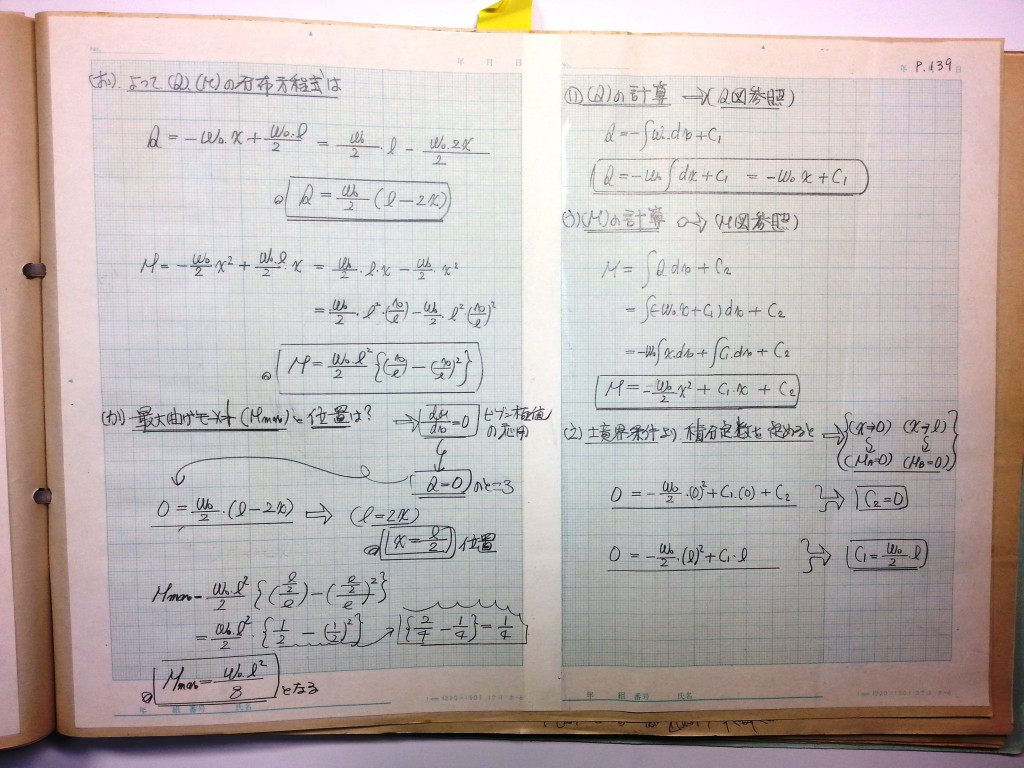 P.139
(お). よって(Q),(M)の分布方程式は
Q = -w₀·x + w₀·l/2 = w₀/2·l - w₀·2x/2
Q = w₀/2 (l-2x)
M = -w₀/2 x² + w₀·l/2·x = w₀/2·l·x - w₀/2·x²
= w₀/2·l²·(x/l) - w₀/2·l²(x/l)²
M = w₀·l²/2 {(x/l) - (x/l)²}
(か) 最大曲げモーメント(Mmax)と位置は? → dM/dx = 0
Q=0 のところ
0 = w₀/2·(l-2x) ⇒ (l=2x)
x = l/2 位置
Mmax = w₀·l²/2 {(l/2/l) - (l/2/l)²}
= w₀·l²/2·{1/2 - (1/2)²} → {2/4 - 1/4} = 1/4
Mmax = w₀·l²/8 となる
年 組 番号 氏名
(Q)の計算 → (Q図参照)
Q = -∫w·dx + C₁
Q = -w₀∫dx + C₁ = -w₀x + C₁
(う)(M)の計算 → (M図参照)
M = ∫Q dx + C₂
= ∫(-w₀x + C₁)dx + C₂
= -w₀∫x·dx + ∫C₁·dx + C₂
M = -w₀/2 x² + C₁·x + C₂
(え) 境界条件より 積分定数を定めると → {(x→0) (x→l)
(MA=0) (MB=0)}
0 = -w₀/2·(0)² + C₁·(0) + C₂ ⇒ C₂=0
0 = -w₀/2·(l)² + C₁·l ⇒ C₁ = w₀/2 l
年 組 番号 氏名